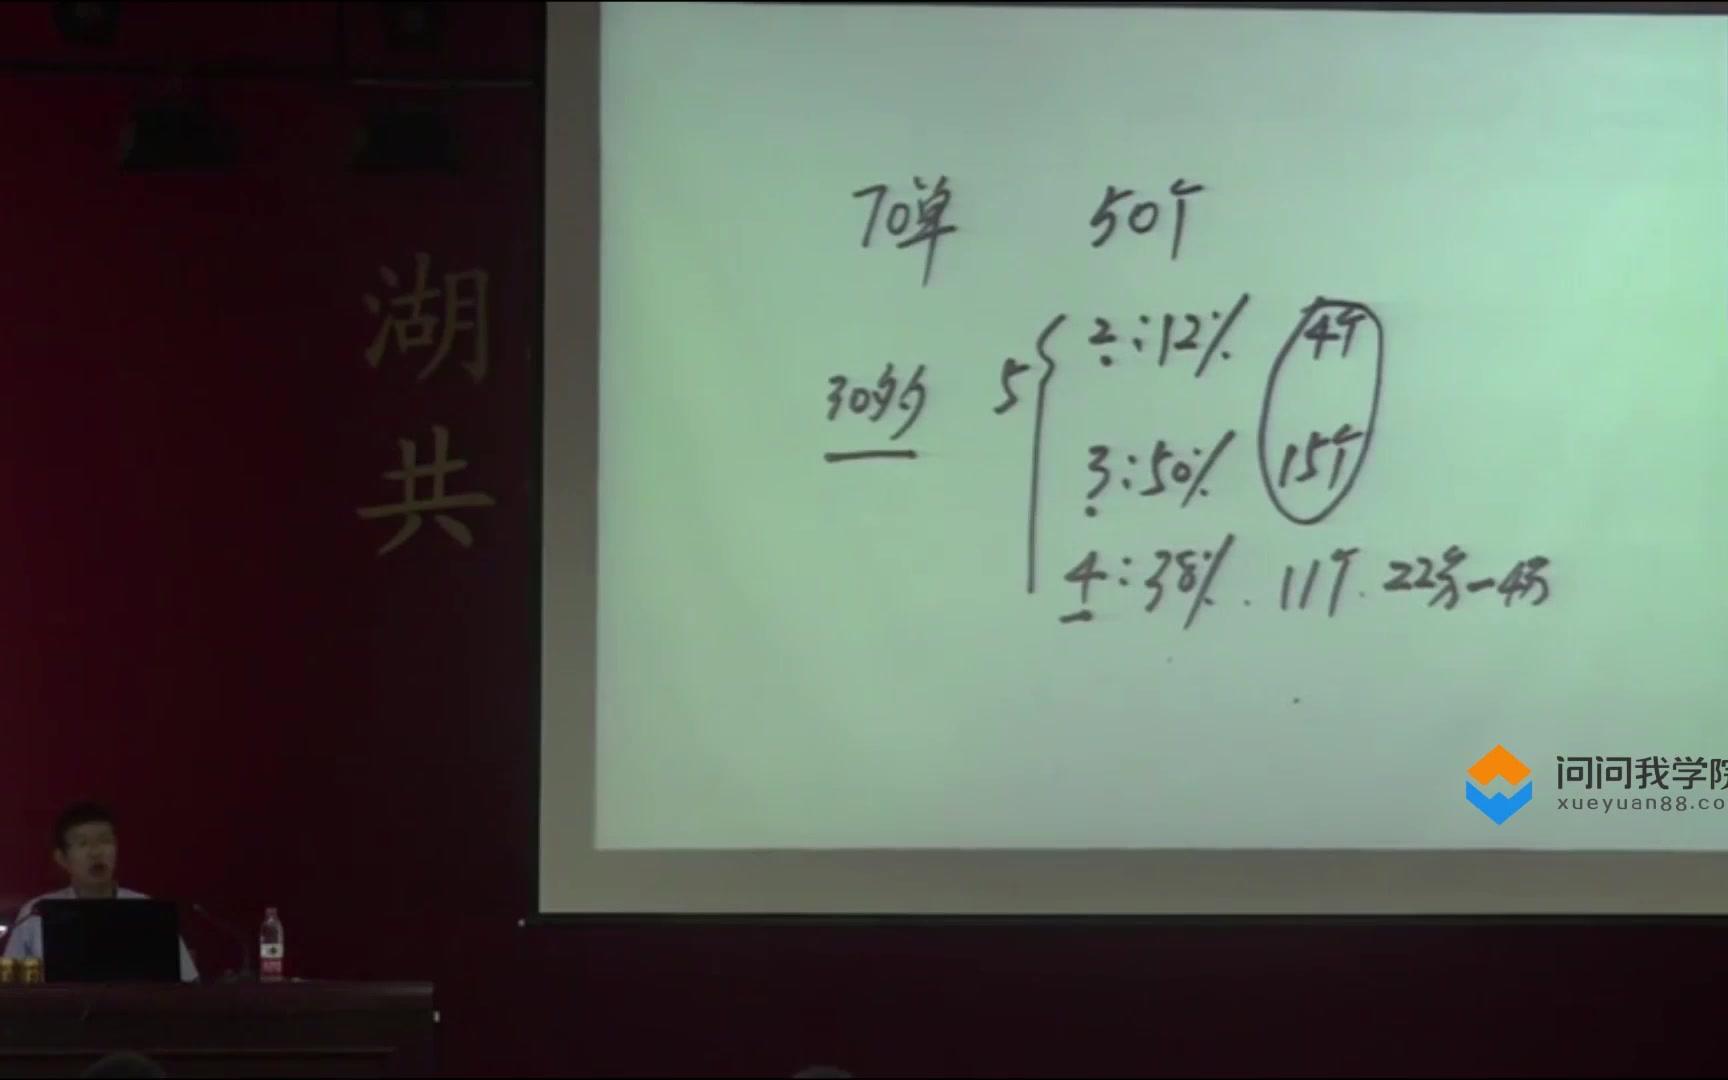 湖
共
70单 50个
30多 5
2:12% 4个
3:50% 15个
4:38% . 11个. 22万-4万
问问我学院
xueyuan88.co